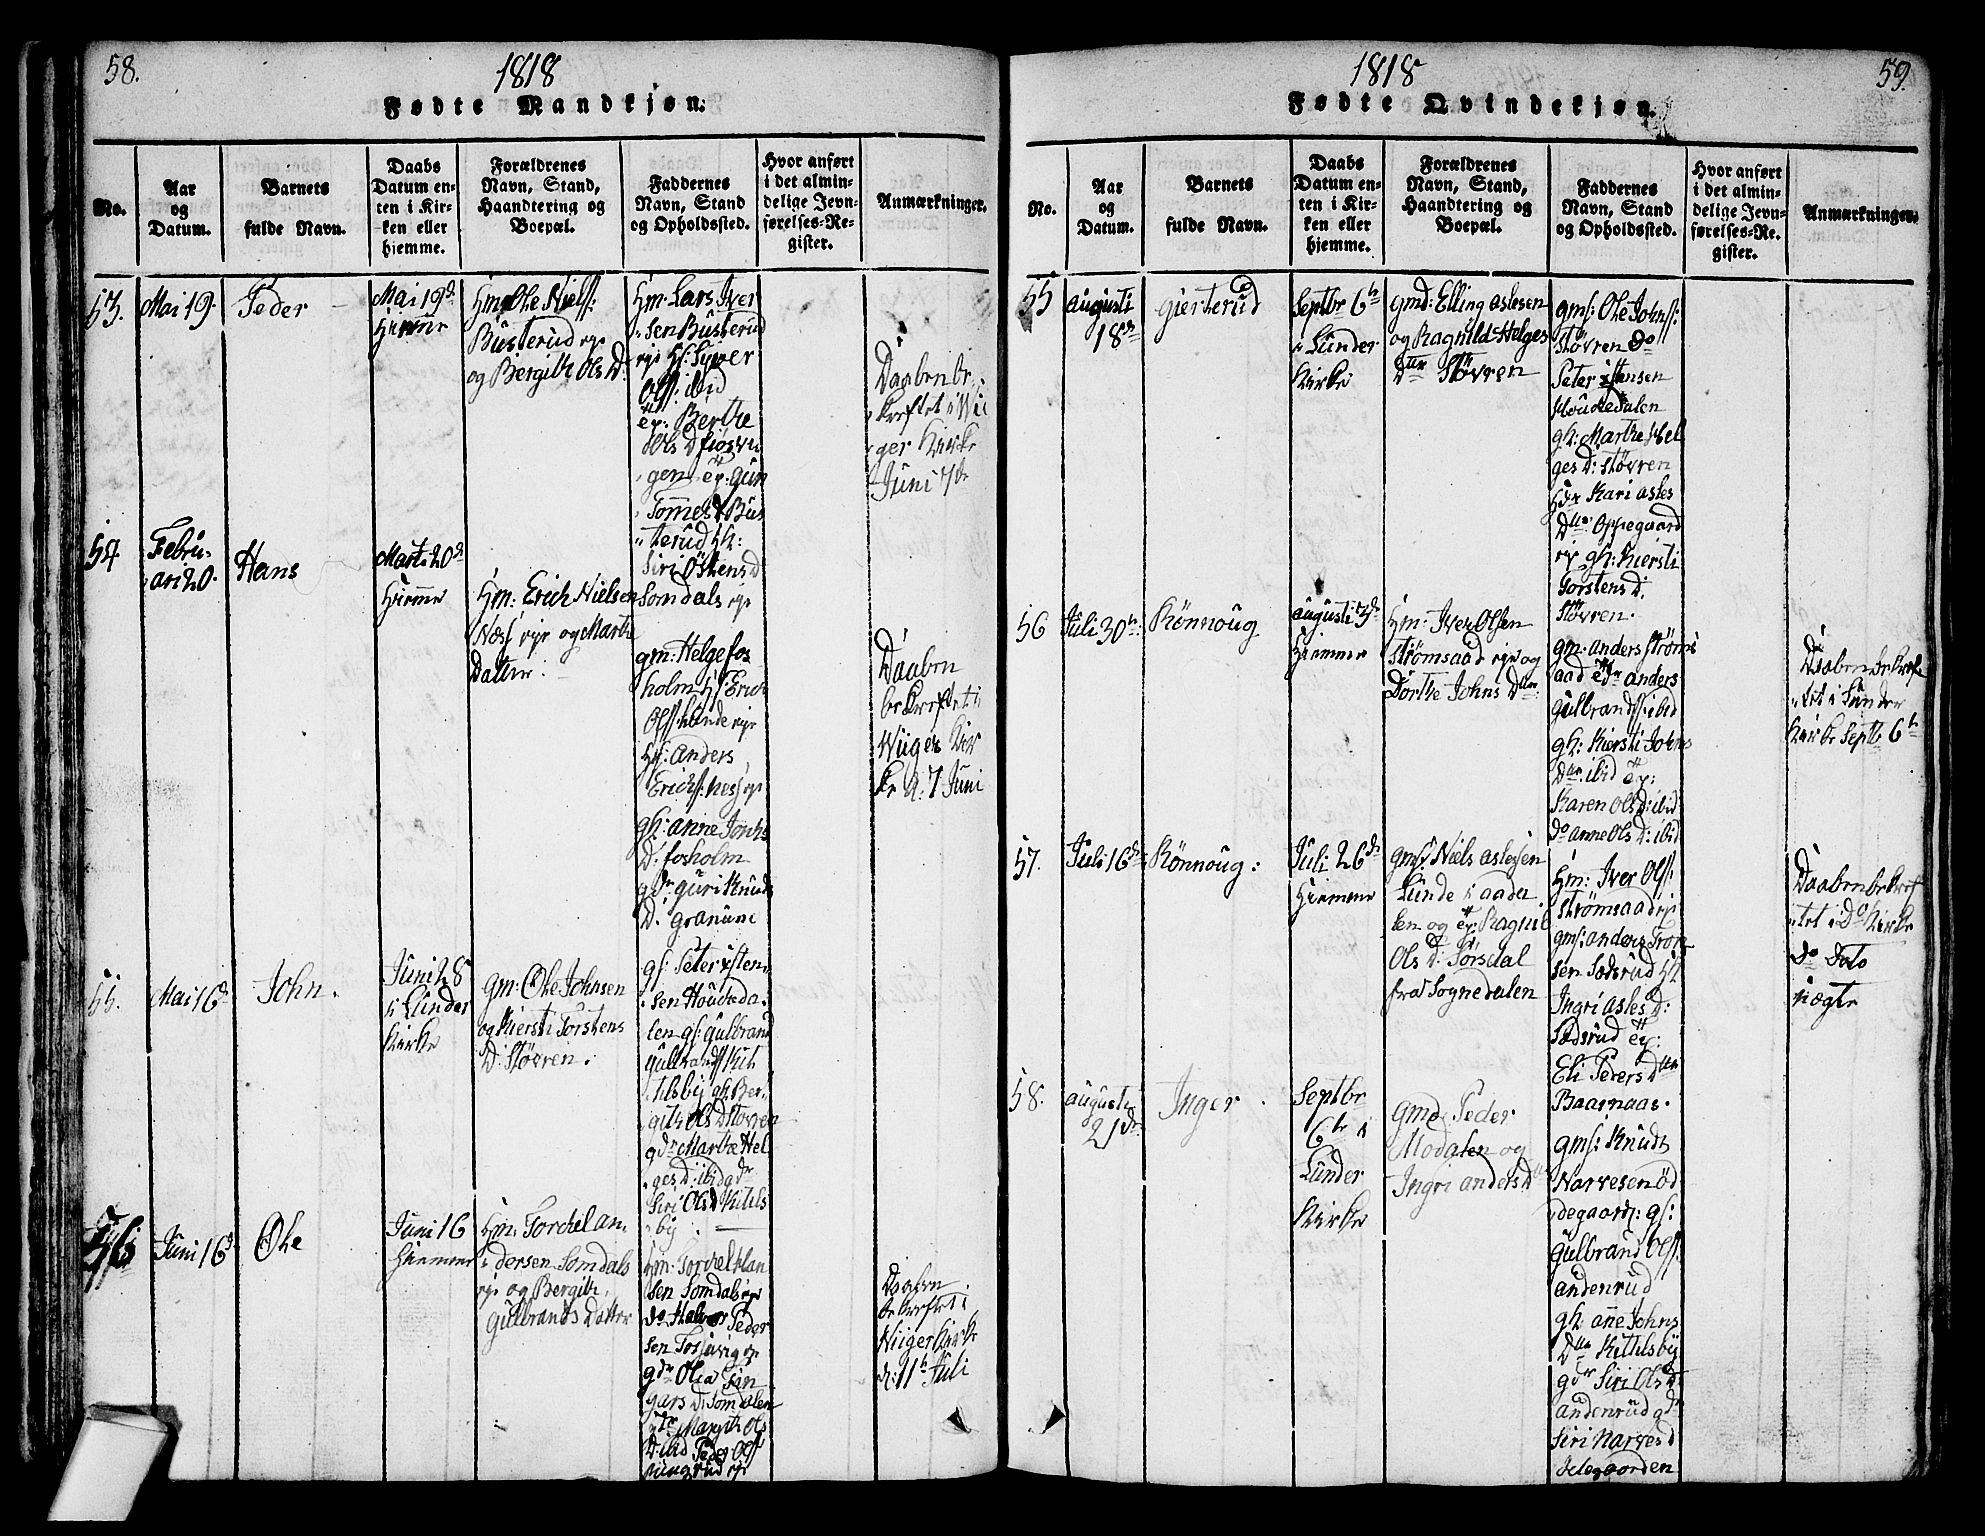 58.
1818
Fødte Mandkjøn.
No.
Aar
og
Datum.
Barnets
fulde Navn.
Daabs
Datum en-
ten i Kir-
ken eller
hjemme.
Forældrenes
Navn, Stand,
Haandtering og
Boepæl.
Faddernes
Navn, Stand
og Opholdssted.
Hvor anført
i det almin-
delige Jevn-
førelses-Re-
gister.
Anmærkninger.
53.
Mai 19.
Peder
Mai 19d
Hiemme
Hm: Ole Nielss:
Busterud eje
og Bergithe Ols D:
Hm: Lars Iver
sen Busterud
eje Hs: Syver
Olss: ibid
Berthe
Ols D
gen
Tommes
Bus
terud Hk:
Siri Östens D
Somdals eje
Daaben be
kreftet i Wii
ger Kirke
Juni 7de
54
Febru-
ari 20.
Hans
Marti 20d
Hiemme
Hm: Erich Nielsen
Næss eje og Marthe
Datter.
gm: Helge fos
holm Hs: Erich
Olss: Lunde eje
Hs: Anders
Erichss: Ness eje
gk: Anne Johns
D: fosholm
gdr Guri Knuds
D: Granum
Daaben
bekreftet i
Wiiger Kir
ke d: 7 Juni
55.
Mai 16d
John.
Juni 28
i Lunder
Kirke
gm: Ole Johnsen
og Kiersti Torstens
D: Støvren.
gs: Peter
sen Houkeda
len gs: Gulbrand
Gulbrandss Kit
tilsby gk: Ber
githe Ols D Støvren
gdr Marthe Hel
ges D: ibid gdr
Siri Ols D Kitels
by.
Juni 16d
Ole
Juni 16
Hiemme
Hm: Torchel An
dersen Somdals
eje og Bergithe
Gulbrands Datter
Hm: Torchel Han
sen Somdals eje
do Halvor Peder
sen
gdr Olea
gars D: Somdalen
Margith Ols
D: ibid Peder Olss
Daaben
bekreftet i
Wiiger Kirke
d: 11te Juli
1818
59.
Fødte Qvindekjøn.
No.
Aar
og
Datum.
Barnets
fulde Navn.
Daabs
Datum en-
ten i Kir-
ken eller
hjemme.
Forældrenes
Navn, Stand,
Haandtering og
Boepæl.
Faddernes
Navn, Stand
og Opholdssted.
Hvor anført
i det almin-
delige Jevn-
førelses-Re-
gister.
Anmærkninger.
55
Augusti
18de
Gierterud
Septbr 6te
i Lunder
Kirke
gmd: Elling Aslesen
og Ragnild Helges
Dtter Støvren
gms: Ole Johnss:
Støvren do
Peter
Houkedalen
gk: Marthe Hel
ges D: Støvren
Kari Asles
Dtter Oppegaard
eje gk: Kiersti
Torstens D:
Støvren.
56
Juli 30te
Rönnoug
Augusti 3de
Hiemme
Hm: Iver Olsen
Strømsaad eje og
Dorthe Johns Dtter
gm: Anders Strøms
aad Anders
Gulbrandss: ibid
gk: Kiersti Johns
Dtter ibid
Karen Ols D: ibid
do Anne Ols D: ibid
Daaben bekref
tet i Lunder
Kirke Septb 6te
57.
Juli 16de
Rönnoug:
Juli 26de
Hiemme
gms: Niels Aslesen
Lunde i Aada
len og Ragnil
Ols D: Sørsdal
fra Sognedalen
Hm: Iver Olss:
Strømsaad eje
gms: Anders Tron
sen Sødsrud Hk
Ingri Asles D:
Sødsrud
Eli Peders Dtter
Baarnaas.
Daaben bekref
tet i Do Kirke
do Dato
58.
Augusti
21de
Inger.
Septbr
6te i
Lunder
Kirke
gmd: Peder
Modalen og
Ingri Anders Dtter
gms: Knudt
Narvesen Ød
degaard: gs:
Gulbrand Olss:
Andenrud
gk: Anne Johns
Dtter Kittilsby
gdr Siri Ols D
Andenrud gdr
Siri Narves D